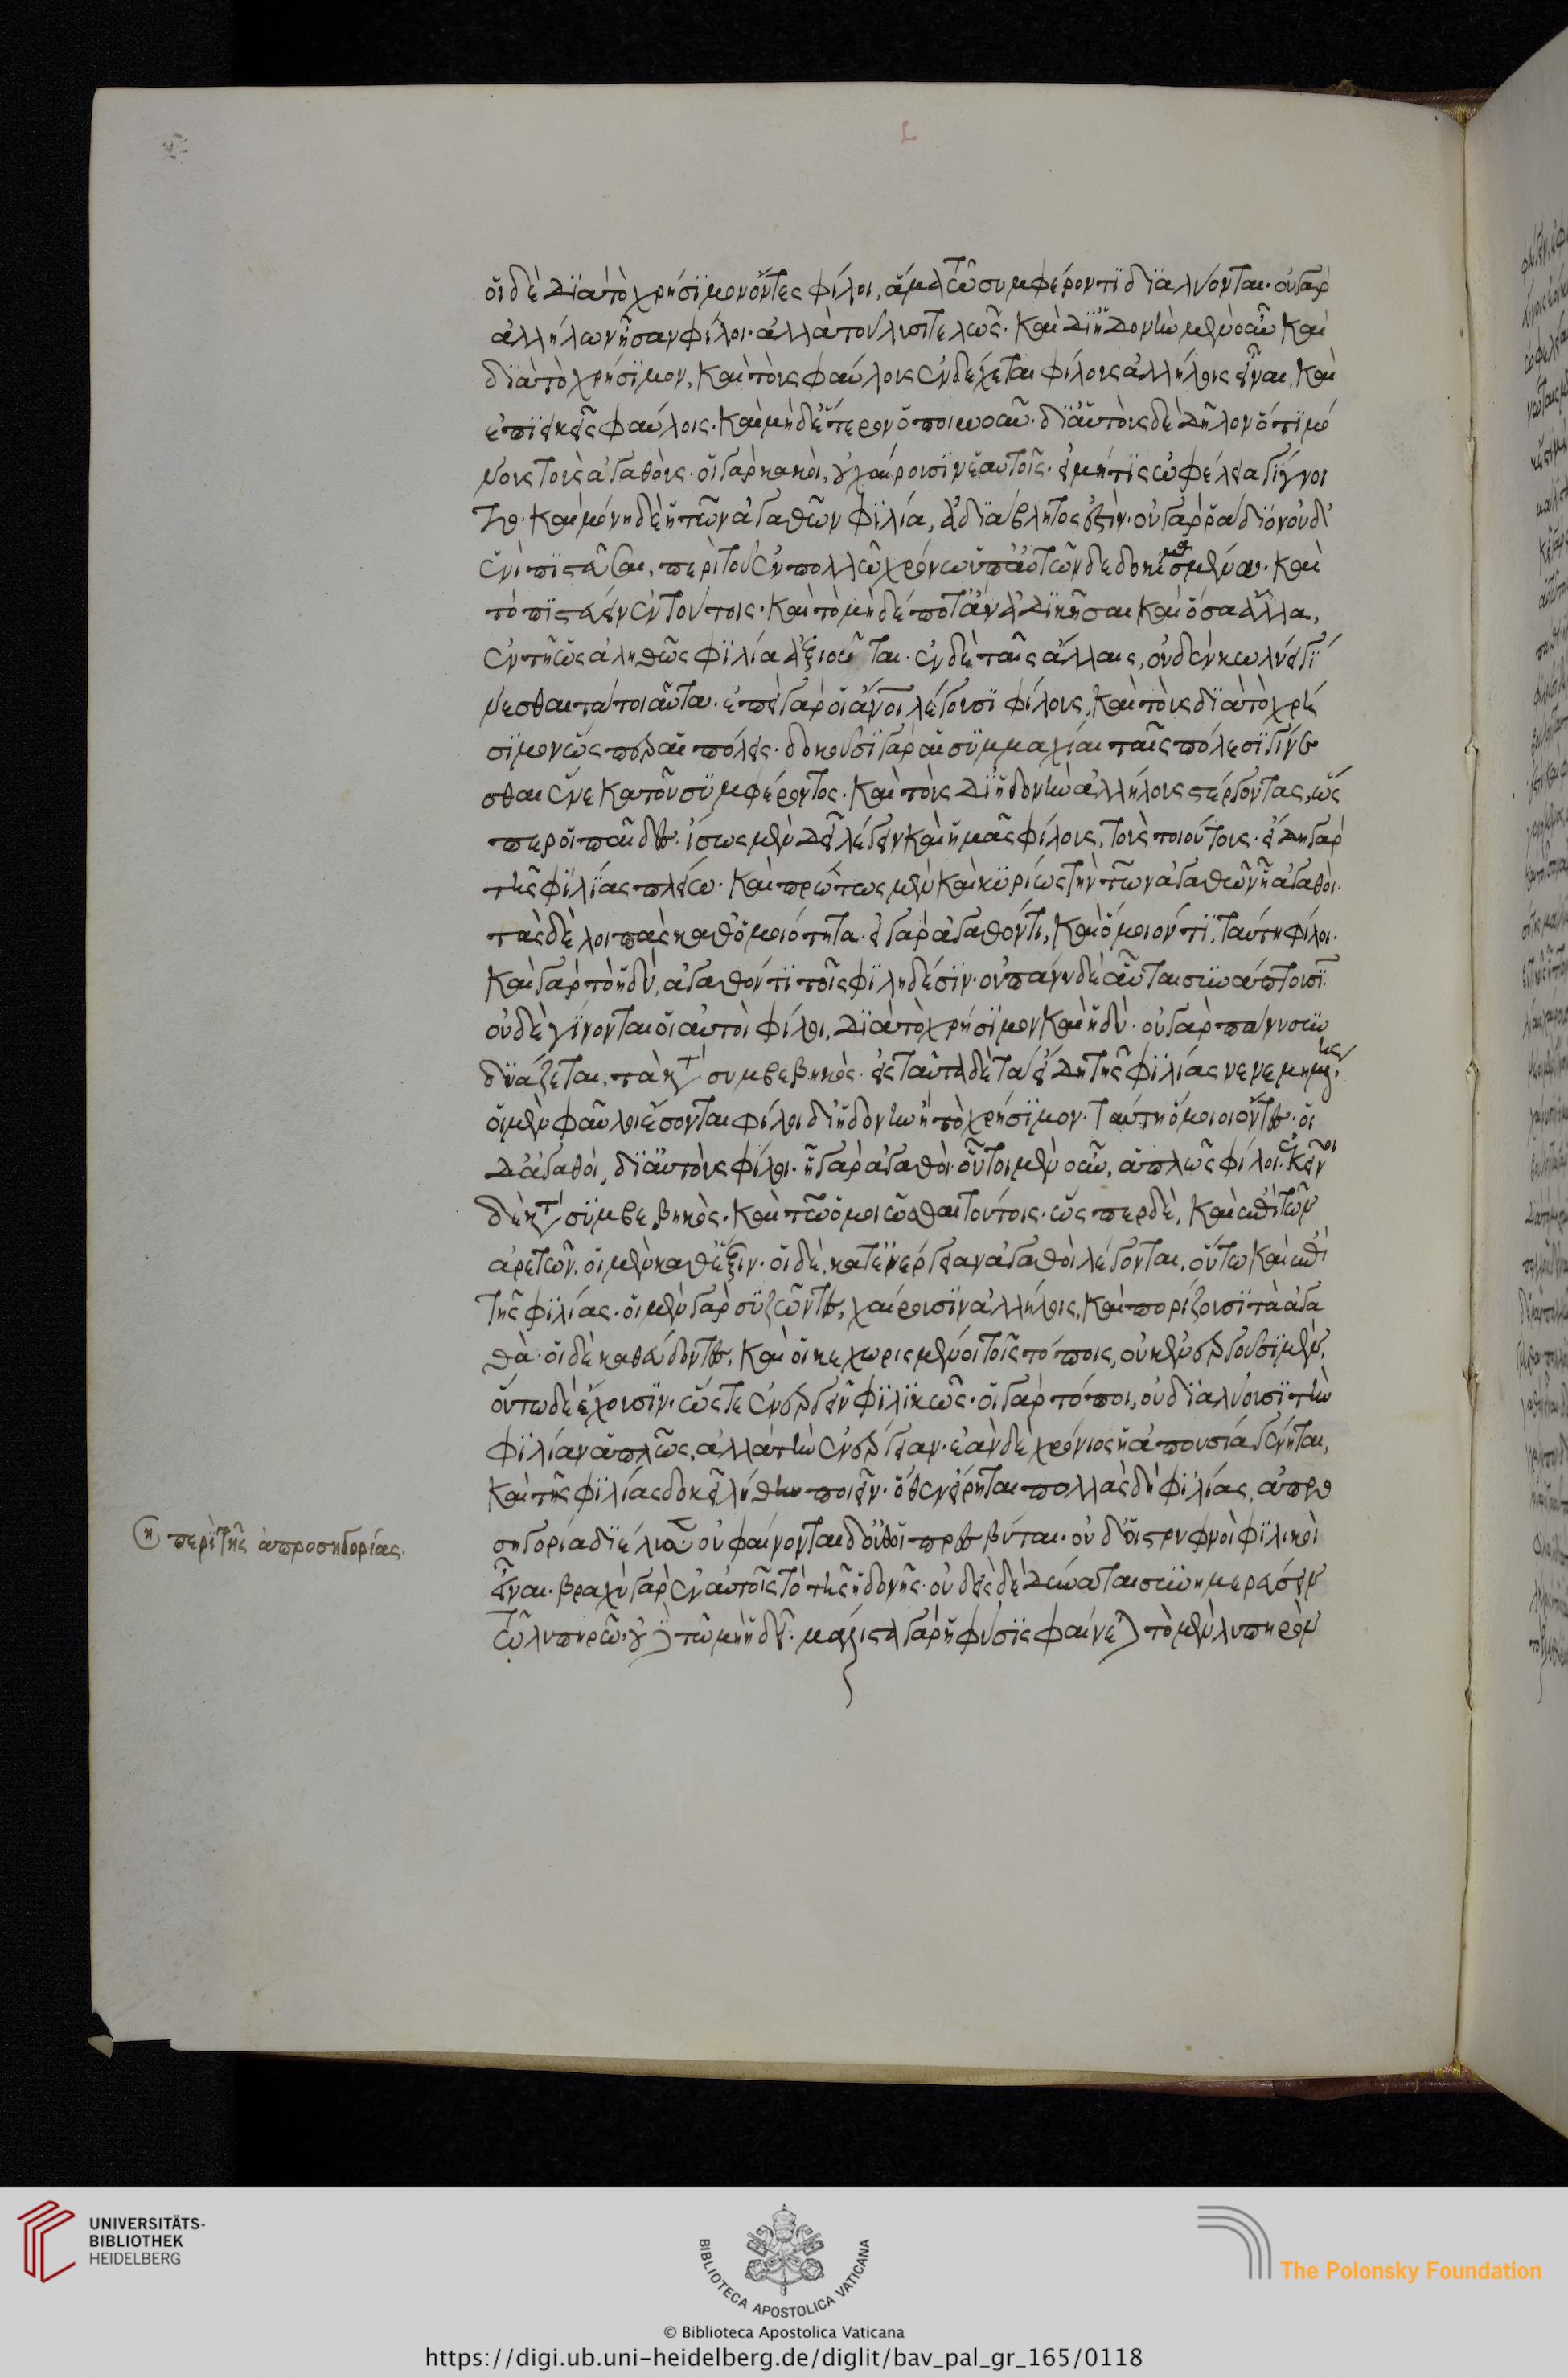 L
οἱ δὲ διὰ τὸ χρήσιμον ὄντες φίλοι, ἅμα τῶ συμφέροντι διαλύονται· οὐ γὰρ
ἀλλήλων ἦσαν φίλοι· ἀλλὰ τοῦ λυσιτελῶς· καὶ δι ἡδονὴν μὲν οὖν καὶ
διὰ τὸ χρήσιμον, καὶ τοὺς φαύλους ἐνδέχεται φίλους ἀλλήλοις εἶναι, καὶ
ἐπιεικεῖς φαύλοις· καὶ μηδέτερον ὁποιωοῦν· δι αὑτοὺς δὲ δῆλον ὅτι μό
νους τοὺς ἀγαθούς· οἱ γὰρ κακοὶ, οὐ χαίρουσιν ἑαυτοῖς· εἰ μή τις ὠφέλεια γίγνοι
το· καὶ μόνη δὲ ἡ τῶν ἀγαθῶν φιλία, ἀδιάβλητος ἐστὶν· οὐ γὰρ ῥάδιον οὐδ
ενὶ πιστεῦσαι, περὶ τοῦ ἐν πολλῶ χρόνω ὑπ αὐτῶν δεδοκιμασμένου· καὶ
τὸ πιστεύειν ἐν τούτοις· καὶ τὸ μηδέποτ ἂν ἀδικῆσαι καὶ ὅσα ἄλλα,
ἐν τῆ ὡς ἀληθῶς φιλία ἀξιοῦται· ἐν δὲ ταῖς ἄλλαις, οὐδὲν κωλύει γί
νεσθαι τὰ τοιαῦτα· ἐπεὶ γὰρ οἱ ἄνοι λέγουσι φίλους, καὶ τοὺς διὰ τὸ χρή
σιμον ὥσπερ αἱ πόλεις· δοκοῦσι γὰρ αἱ συμμαχίαι ταῖς πόλεσι γίνε
σθαι ἕνεκα τοῦ συμφέροντος· καὶ τοὺς δι ἡδονὴν ἀλλήλους στέργοντας, ὥσ
περ οἱ παῖδες· ἴσως μὲν δεῖ λέγειν καὶ ἡμᾶς φίλους, τοὺς τοιούτους· εἴδη γὰρ
τῆς φιλίας πλείω· καὶ πρώτως μὲν καὶ κυρίως τὴν τῶν ἀγαθῶν ἧ ἀγαθοὶ·
τὰς δὲ λοιπὰς καθ ὁμοιότητα· εἰ γὰρ ἀγαθόν τι, καὶ ὅμοιόν τι, ταύτη φίλοι·
καὶ γὰρ τὸ ἡδὺ, ἀγαθόν τι τοῖς φιληδέσιν· οὐ πάνυ δὲ αὗται συνάπτουσι·
οὐδὲ γίνονται οἱ αὐτοὶ φίλοι, διὰ τὸ χρήσιμον καὶ ἡδὺ· οὐ γὰρ πάνυ συν
δυάζεται, τὰ κατὰ συμβεβηκὸς· εἰς ταῦτα δὲ τὰ εἴδη τῆς φιλίας νενεμημένης·
οἱ μὲν φαῦλοι ἔσονται φίλοι δι ἡδονὴν ἢ τὸ χρήσιμον· ταύτη ὅμοιοι ὄντες· οἱ
δ ἀγαθοὶ, δι αὑτοὺς φίλοι· ἧ γὰρ ἀγαθοὶ· οὗτοι μὲν οὖν, ἁπλῶς φίλοι· ἐκεῖνοι
δὲ κατὰ συμβεβηκὸς· καὶ τῶ ὁμοιῶσθαι τούτοις· ὥσπερ δὲ, καὶ ἐπὶ τῶν
ἀρετῶν, οἱ μὲν καθ ἕξιν· οἱ δὲ, κατ ἐνέργειαν ἀγαθοὶ λέγονται, οὕτω καὶ ἐπὶ
τῆς φιλίας· οἱ μὲν γὰρ συζῶντες, χαίρουσιν ἀλλήλοις, καὶ πορίζουσι τὰ ἀγα
θὰ· οἱ δὲ καθεύδοντες, καὶ οἱ κεχωρισμένοι τοῖς τόποις, οὐκ ἐνεργοῦσι μὲν,
οὕτω δὲ ἔχουσιν· ὥστε ἐνεργεῖν φιλικῶς· οἱ γὰρ τόποι, οὐ διαλύουσι τὴν
φιλίαν ἁπλῶς, ἀλλὰ τὴν ἐνέργειαν· ἐὰν δὲ χρόνιος ἡ ἀπουσία γένηται,
καὶ τῆς φιλίας δοκεῖ λήθην ποιεῖν· ὅθεν εἴρηται πολλὰς δὴ φιλίας, ἀπρο
σηγορία διέλυσεν· οὐ φαίνονται δ οὔθ οἱ πρεσβύται· οὐδ οἱ στρυφνοὶ φιλικοὶ
εἶναι· βραχὺ γὰρ ἐν αὐτοῖς τὸ τῆς ἡδονῆς· οὐδεὶς δὲ δύναται συνημερεύειν
τῶ λυπηρῶ· οὐδὲ τῶ μὴ ἡδεῖ· μάλιστα γὰρ ἡ φύσις φαίνεται τὸ μὲν λυπηρὸν
η περὶ τῆς ἀπροσηγορίας.
UNIVERSITÄTS-
BIBLIOTHEK
HEIDELBERG
BIBLIOTECA APOSTOLICA VATICANA
The Polonsky Foundation
© Biblioteca Apostolica Vaticana
https://digi.ub.uni-heidelberg.de/diglit/bav_pal_gr_165/0118